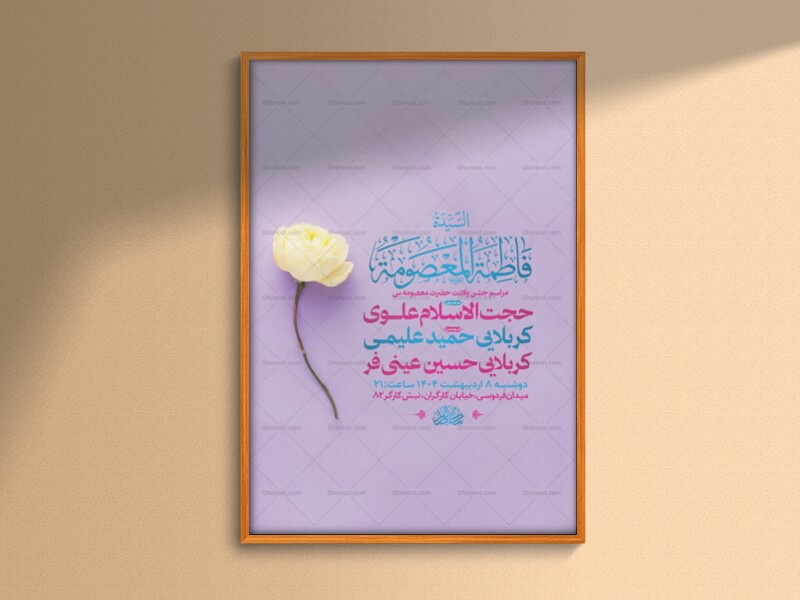 السَّيِّدَة
فَاطِمَةُ المَعْصُومَة
مراسم جشن ولادت حضرت معصومه س
حجت الاسلام علـوی
کربلایی حمید علیمـی
کربلایی حسین عینی فر
دوشنبه ۸ اردیبهشت ۱۴۰۴ ساعت:۲۱
میدان فردوسی،خیابان کارگران، نبش کارگر ۸۲
Ghonoot.com